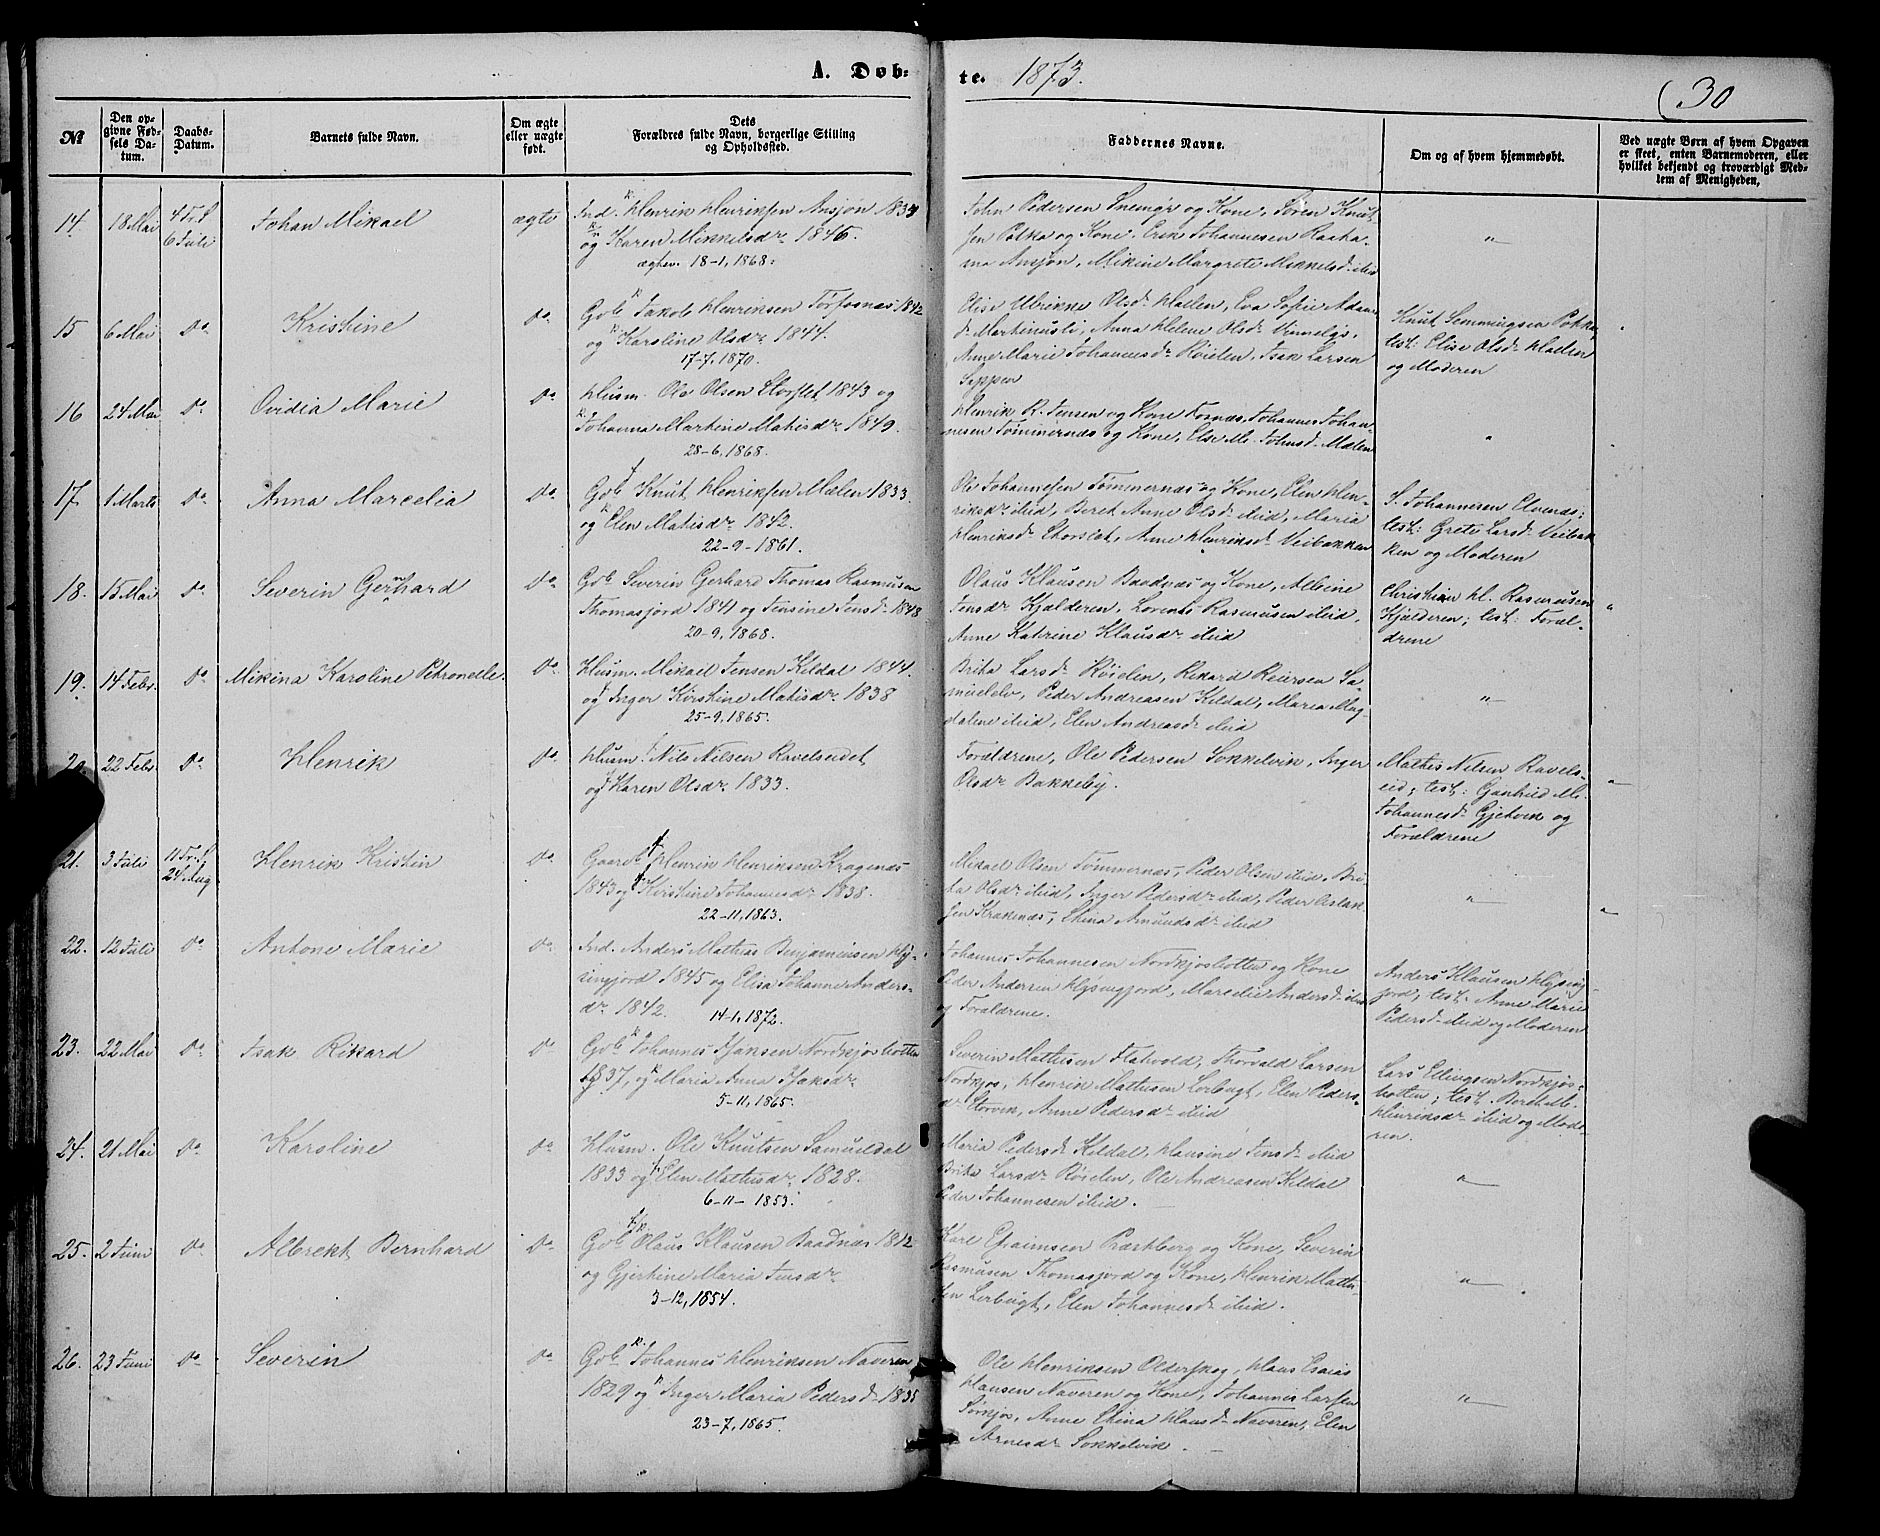 A. Døb-
te. 1873.
30
№
Den op-
givne Fød-
sels Da-
tum.
Daabs-
Datum.
Barnets fulde Navn.
Om ægte
eller uægte
født.
Dets
Forældres fulde Navn, borgerlige Stilling
og Opholdssted.
Faddernes Navne.
Om og af hvem hjemmedøbt.
Ved uægte Børn af hvem Opgaven
er skeet, enten Barnemoderen, eller
hvilket bekjendt og troværdigt Med-
lem af Menigheden,
14. 18 Mai
6 Juli
Johan Mikael
ægte
Ind. Henrik Henriksen Ansjøn 1834
og Karen Mikkelsdr 1846.
18-1, 1868.
John Pedersen og Kone, Søren Knut
sen Polka og Kone. Erik Johannesen
Ansjøn, Mikine Margrete Mikkelsd. ibid
"
15 6 Mai Do
Kristine
Do
Gdb Jakob Henriksen 1842
og Karoline Olsdr 1844.
17-7. 1870.
Elise Ulrikke Olsd. Mælen, Eva Sofie
Anna Helene Olsd.
Anne Marie Johannesd. Røielen, Isak Larsen
Seppen
Knut Semmingsen
test: Elise Olsd. Mælen
og Moderen
16 24 Mai Do
Ovidia Marie
Do
Husm. Ole Olsen Storslet 1843 og
Johanna Martine Matisdr 1849.
28-6, 1868.
Henrik R. Jensen og Kone Fosnæs, Johannes Johan-
nesen Tømmernæs og Kone, Else M. Johnsd. Mælen
"
17. 1 Marts Do
Anna Marcelia
Do
Gdb Knut Henriksen Mælen 1833.
og Elen Matisdr 1842.
22-9-1861.
Ole Johannesen Tømmernæs og Kone, Elen Hen-
riksdr ibid, Beret Anne Olsd. ibid, Maria
Henriksd. Storslet, Anne Henriksd. Veibakken
S. Johannesen Elvenæs;
test: Grete Larsd. Veibak
ken og Moderen
18. 15 Mai Do
Severin Gernhard
Do
Gdb Severin Gerhard Thomas Rasmusen
Thomasjord 1841 og Jensine Jensd. 1848
20-9, 1868.
Olaus Klausen Baadnæs og Kone, Albine
Jensdr Kjælderen, Lorents Rasmusen ibid,
Anne Katrine Klausdr ibid
Christian Hl. Rasmusen
Kjælderen; test: Foræl-
drene
"
19. 14 Febr. Do
Mikina Karoline Petronelle.
Do
Husm. Mikael Jensen Kildal 1844.
og Inger Kirstine Matisdr 1838
25-9, 1865.
Brita Larsd. Røielen, Rikard Reiersen Sa-
muelelv, Peder Andreasen Kildal, Maria Mag-
dalene ibid, Elen Andreasd. ibid
"
20. 22 Febr Do
Henrik
Do
Husm. Nils Nilsen Ravelseidet
og Karen Olsdr 1833.
Forældrene, Ole Pedersen Sokkelvik, Inger
Olsdr Bakkeby.
Mathis Nilsen Ravels-
eid; test: Gunhild M.
Johannesd. Gjetvik og
Forældrene
"
21. 3 Juli
24 Aug
Henrik Kristin
Do
Gaardb Henrik Henriksen Kragenæs
1843 og Kirstine Johannesdr 1838.
22-11, 1863.
Mikael Olsen Tømmernæs, Peder Olsen ibid, Bri-
ta Olsdr ibid, Inger Pedersdr ibid, Peder
sen Krakenæs, Stina Amundsdr ibid
"
"
22. 12 Juli Do
Antone Marie
Do
Ind. Anders Mathias Benjaminsen Hy-
singjord 1845 og Elisa Johanne Anders-
dr 1842.
14-1, 1872.
Johannes Johannesen Nordkjosbotten og Kone
Peder Andersen Hysingjord, Marselie Andersd. ibid
og Forældrene.
Anders Klausen Hysing
jord, test. Anne Marie
Pedersd. ibid og Moderen
23. 22 Mai Do
Isak Rikard
Do
Gdb Johannes Isaksen Nordkjosbotten
1837, og Maria Anna Isaksdr
5-11, 1865.
Severin Mathisen Flatvold, Thorvald Larsen
Nordkjos, Henrik Mathisen Lerbugt, Elen Peders-
dr Storvik, Anne Pedersdr ibid
Lars Ellingsen Nordkjos-
botten; test. Beret M.
Henriksdr ibid og Mode-
ren.
24. 21 Mai Do
Karoline
Do
Husm. Ole Knutsen Samueldal
1833 og Elen Mathisdr 1828.
6-11-1853.
Maria Pedersd. Kildal, Hansine Jensd. ibid
Brita Larsdr Røielen, Ole Andreasen Kildal
Peder Johannesen ibid.
"
25. 2 Juni Do
Albrekt Bernhard
Do
Gdb Olaus Klausen Baadnæs 1812
og Gjertine Maria Jensdr
3-12, 1854.
Karl Efraimsen Præstberg og Kone, Severin
Rasmusen Thomasjord og Kone, Henrik Mathi-
sen Lerbugt, Elen Johannesd. ibid.
"
26. 23 Juni Do
Severin
Do
Gdb Johannes Henriksen Naveren
1829 og Inger Maria Pedersd. 1835
23-7, 1865.
Ole Henriksen Olderskog, Hans Esaias
Hansen Naveren og Kone, Johannes Larsen
Sørkjos, Anne Stina Hansd. Naveren, Elen
Arnesdr Sokkelvik.
"